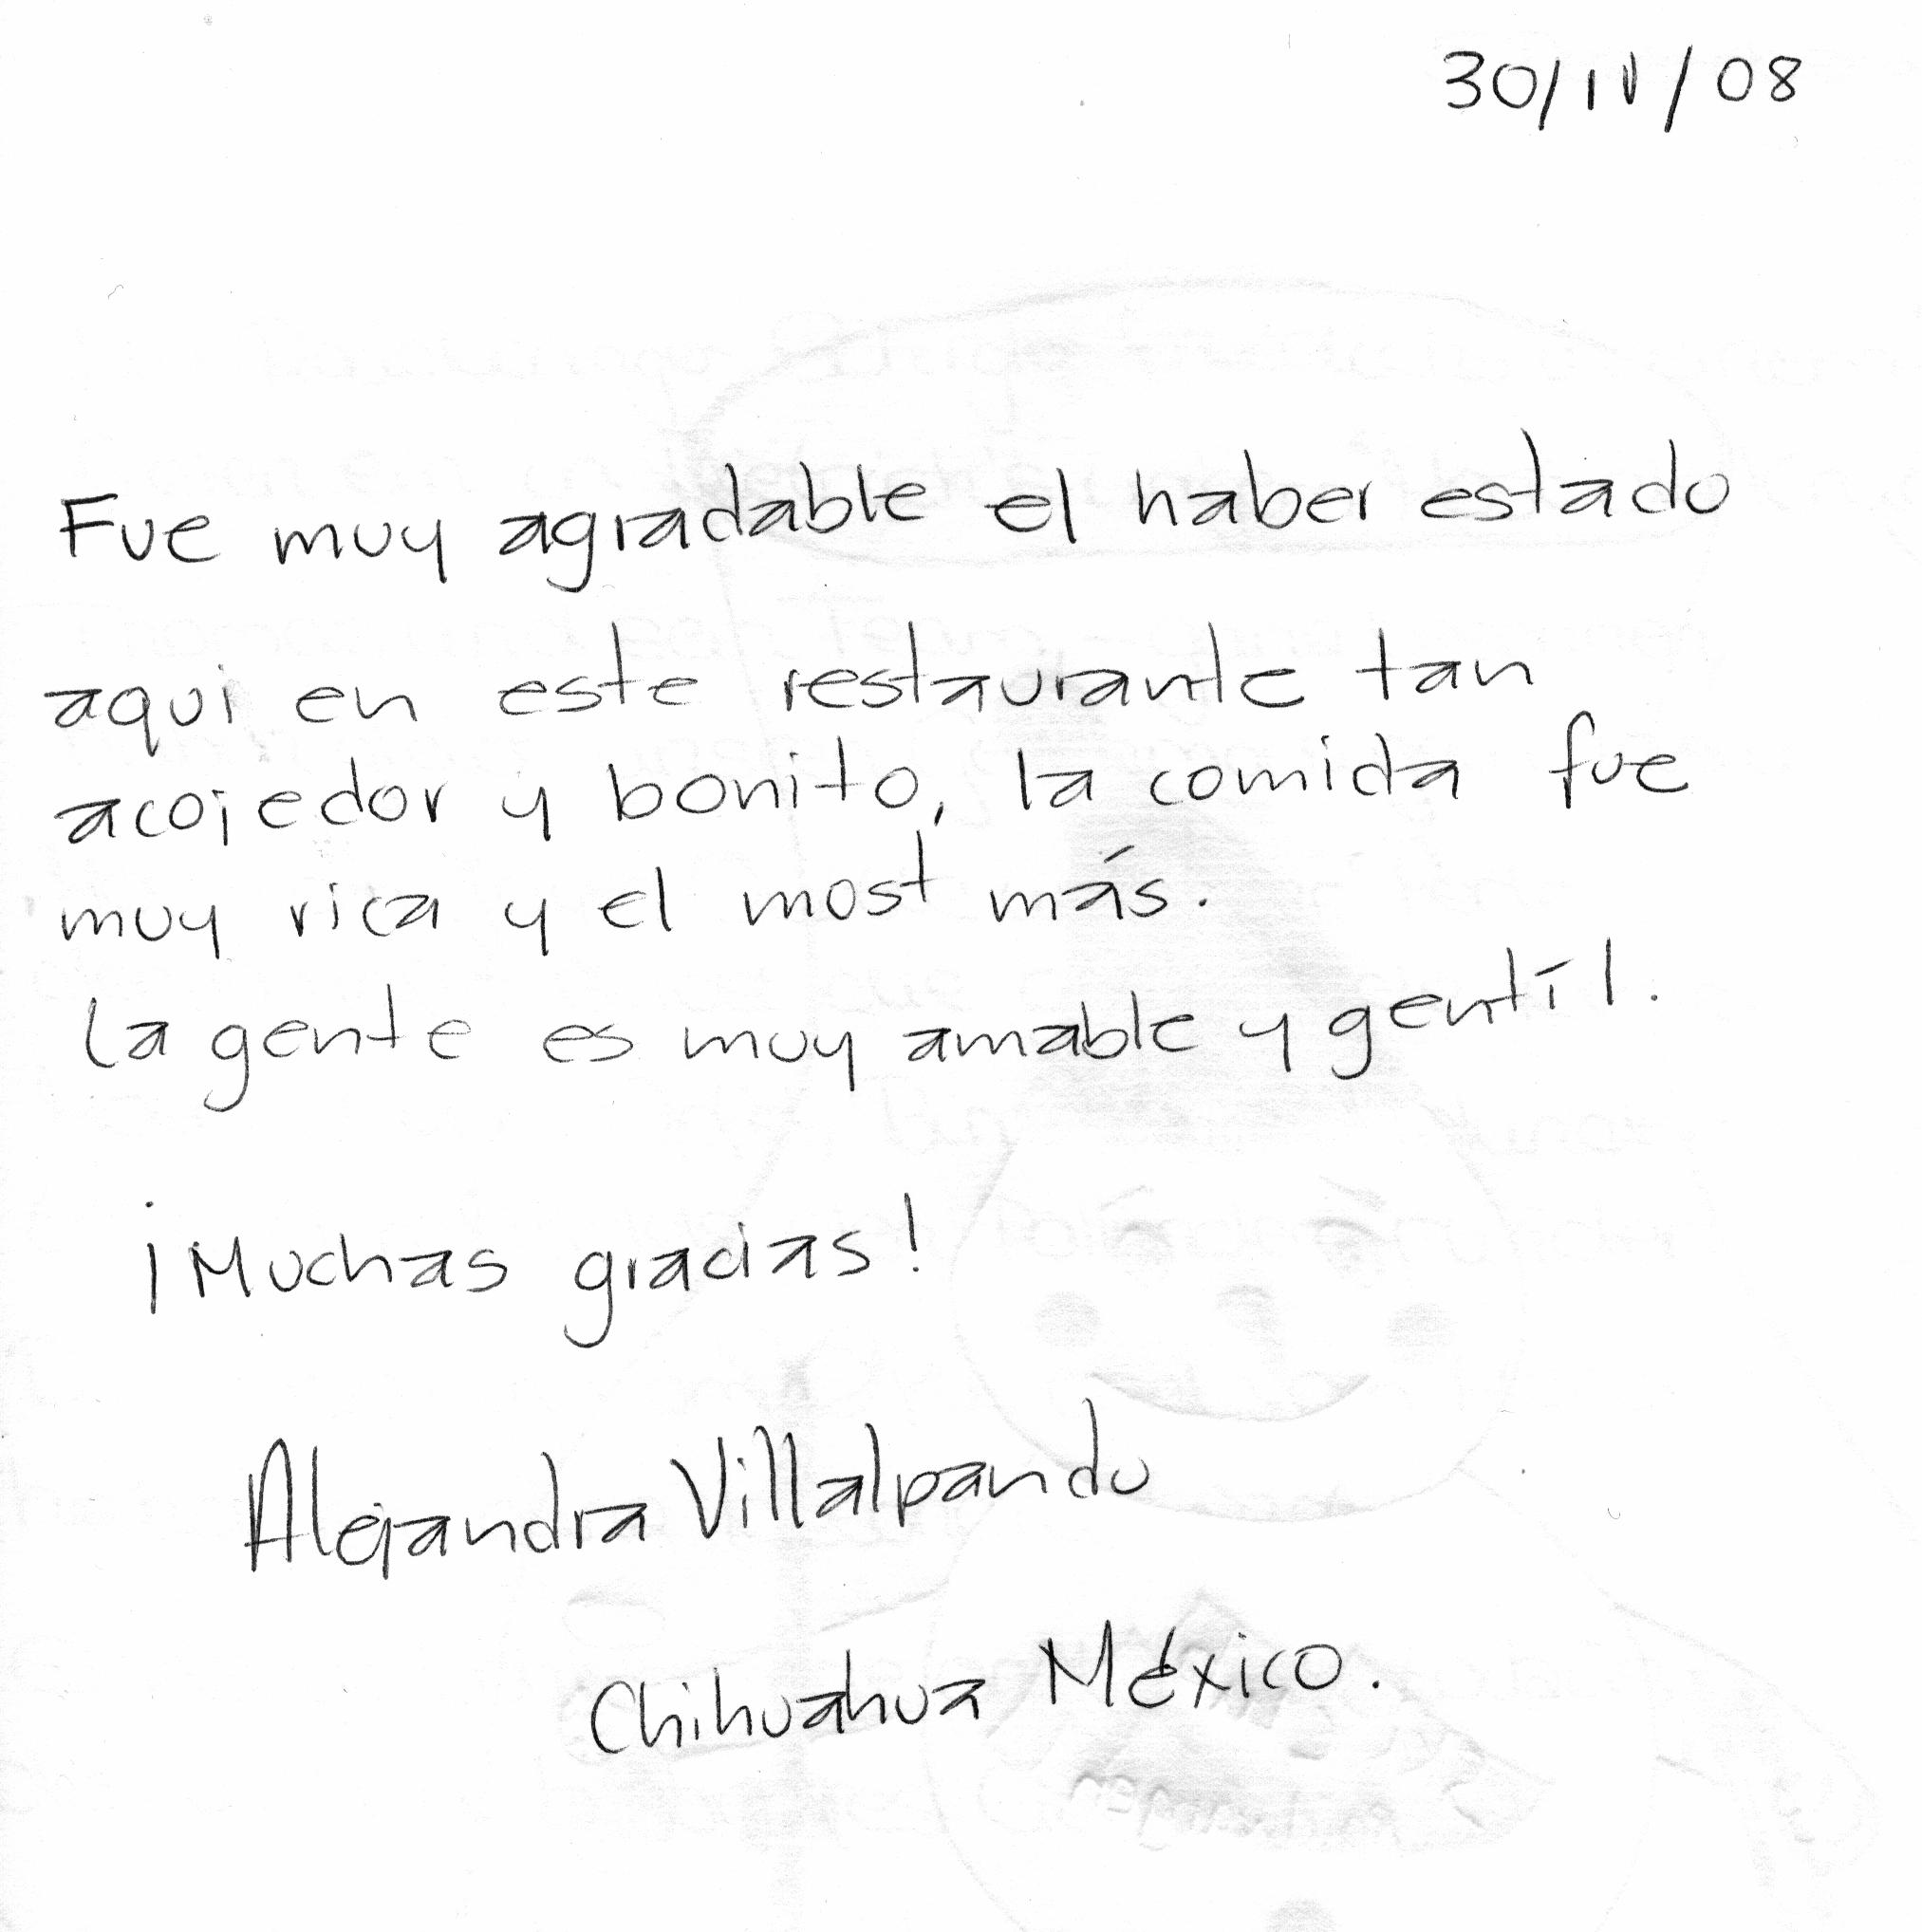 30/IV/08
Fue muy agradable el haber estado
aqui en este restaurante tan
acojedor y bonito, la comida fue
muy rica y el most más.
La gente es muy amable y gentíl.
¡Muchas gracias!
Alejandra Villalpando
Chihuahua México.